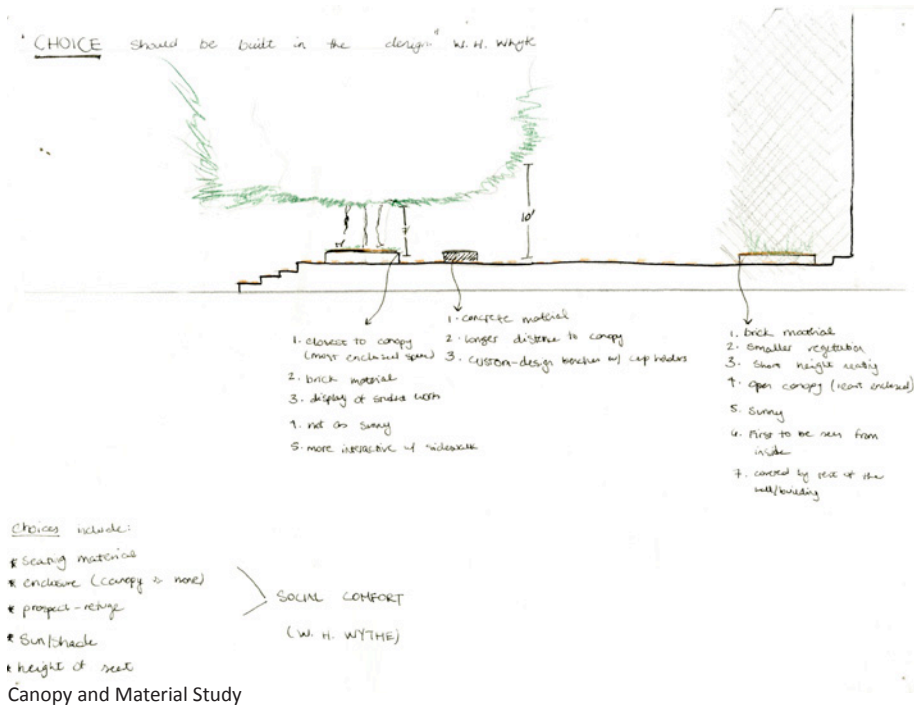 "CHOICE should be built in the design" W. H. Whyte
10'
7'
1. closest to canopy
(most enclosed space)
2. brick material
3. display of student work
4. not as sunny
5. more interactive w/ sidewalk
1. concrete material
2. longer distance to canopy
3. custom-design benches w/ cup holders
1. brick material
2. smaller vegetation
3. short height seating
4. open canopy (least enclosed)
5. sunny
6. First to be seen from
inside
7. covered by rest of the
wall/building
Choices include:
* seating material
* enclosure (canopy none)
* prospect-refuge
* sun/shade
* height of seat
SOCIAL COMFORT
(W. H. WYTHE)
Canopy and Material Study